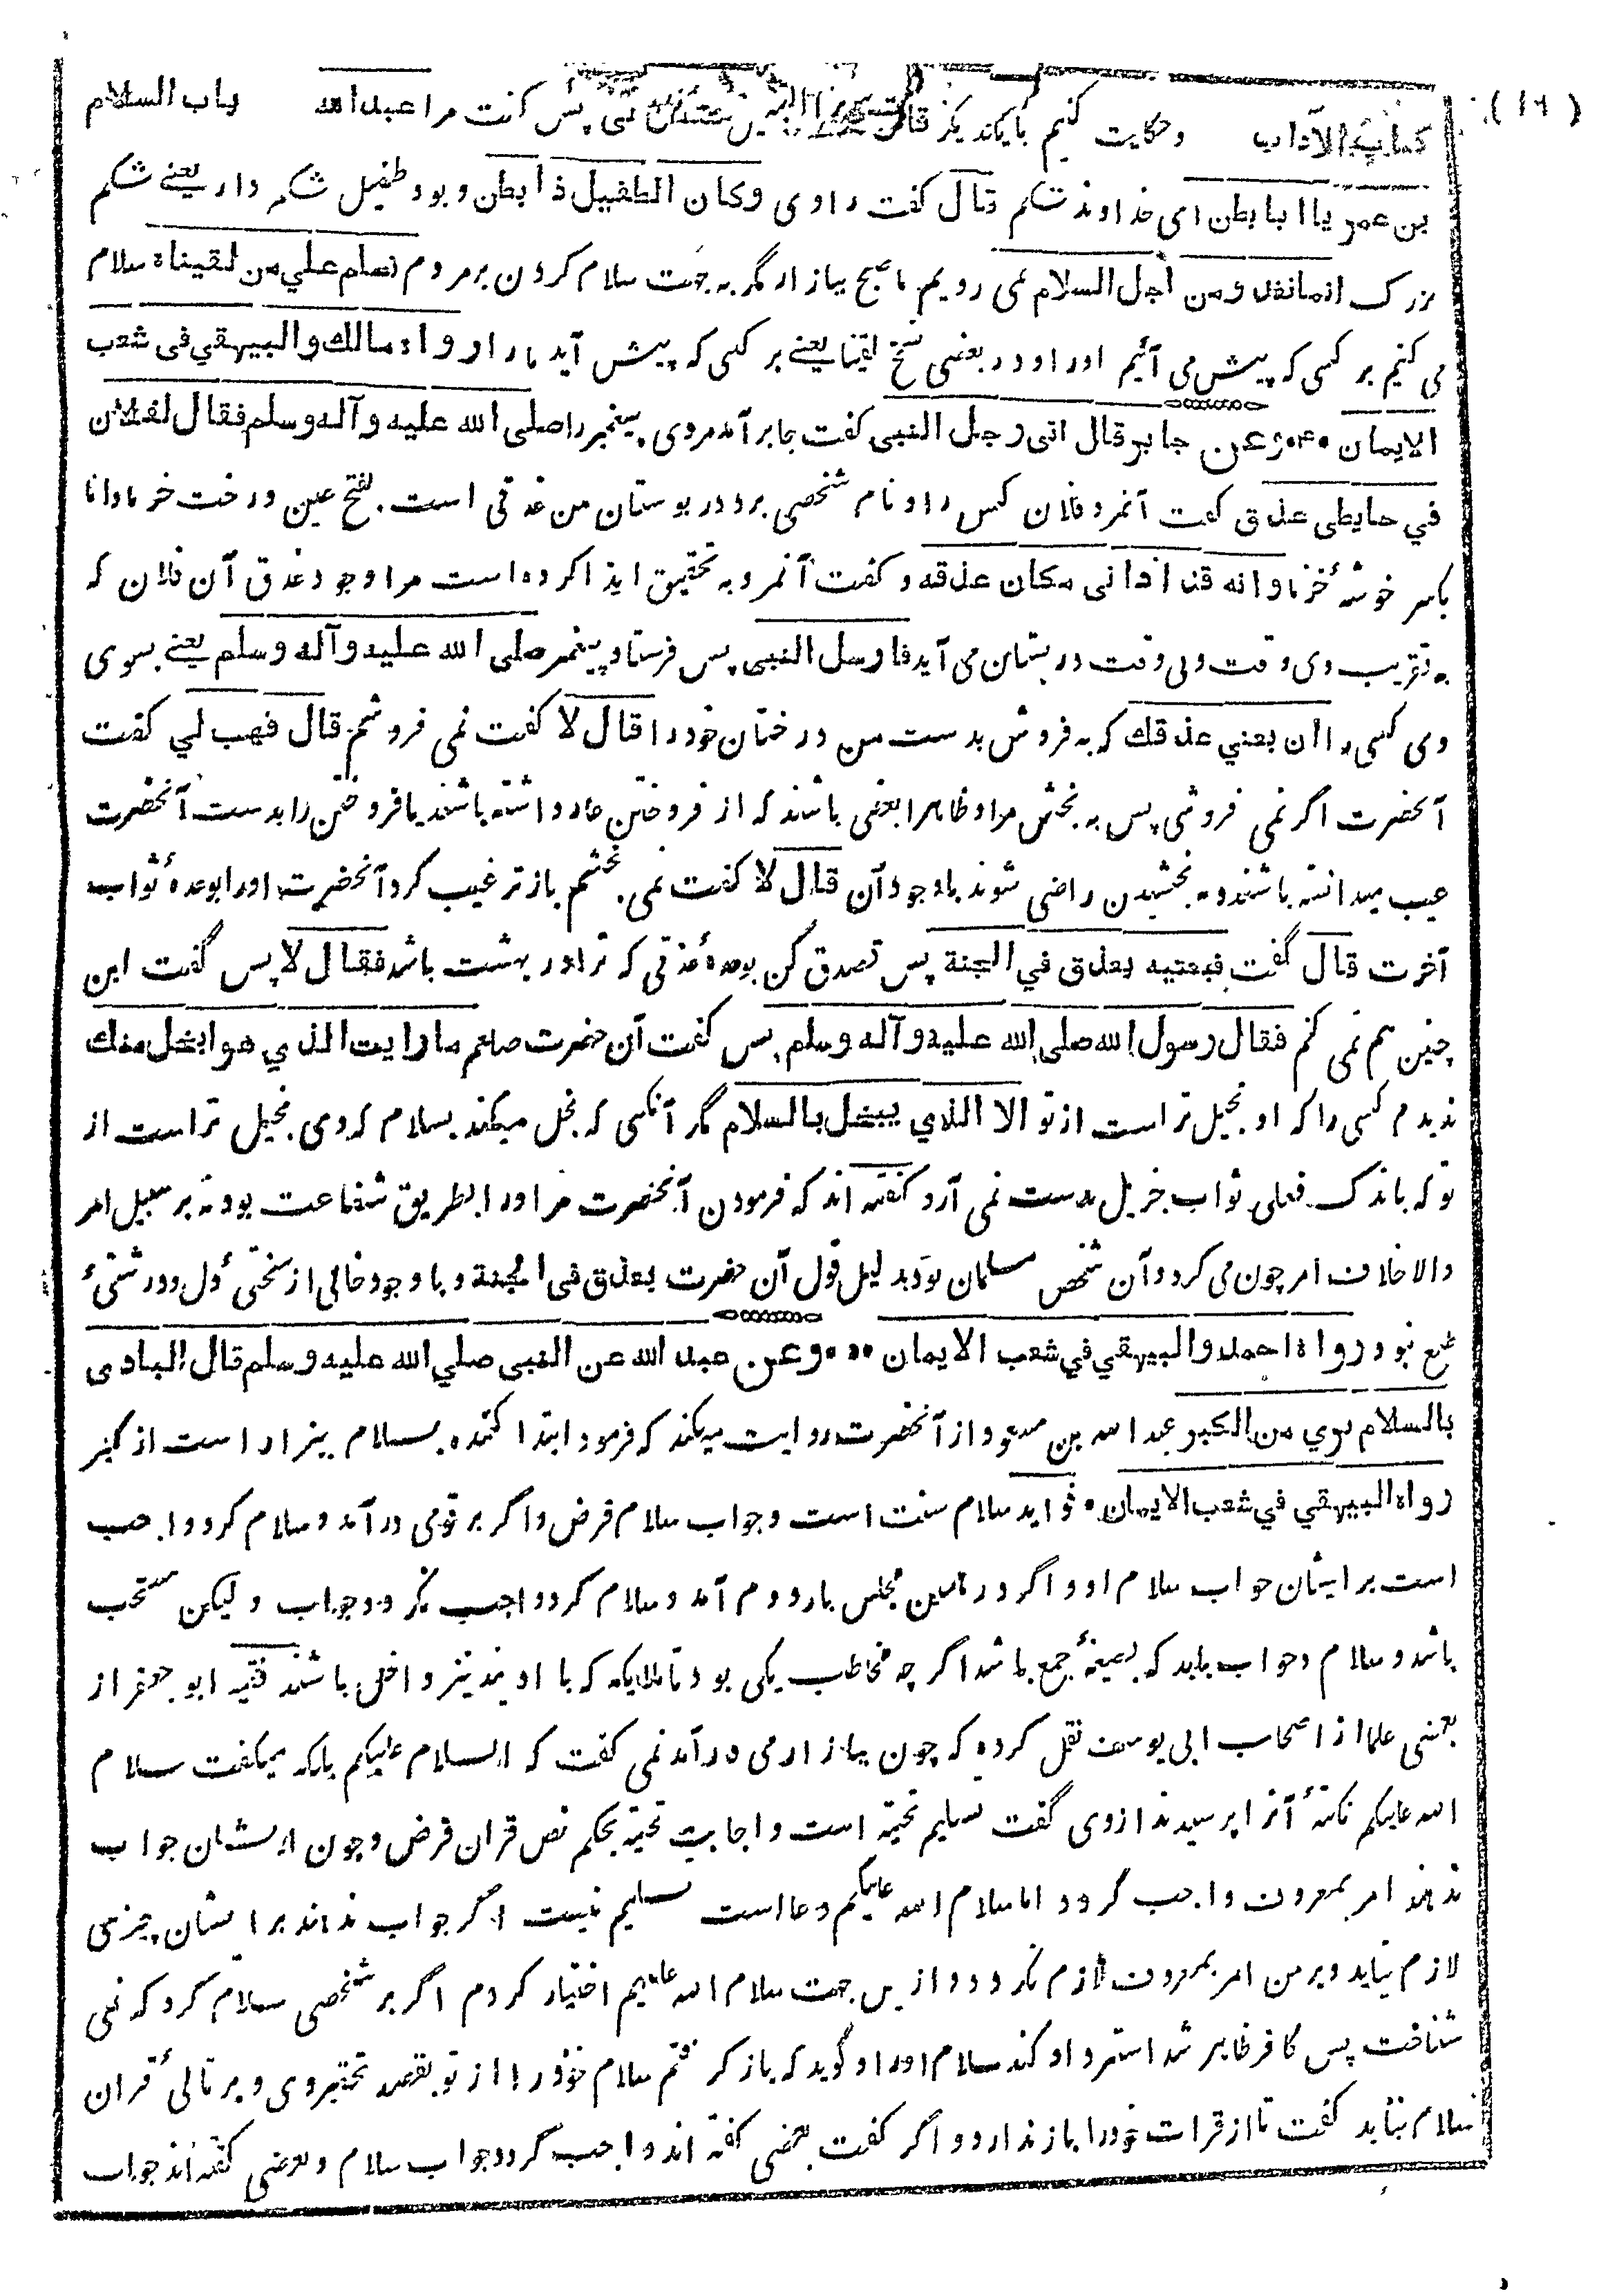 (١٦)
كتاب الآداب
باب السلام
وحکایت کنیم بایکدیگر قال پس گفت مرا عبد الله
بن عمر یا ابا بطن ای خداوند شکم قال گفت راوی وكان الطفيل ذا بطن و بود طفیل شکم دار یعنی شکم
بزرگ انما نغدو من أجل السلام نمی رویم ما صبح ببازار مگر به جهت سلام کردن بر مردم نسلم علي من لقيناه سلام
می کنیم بر کسی که پیش می آئیم اورا و در بعضی نسخ لقینا یعنی بر کسی که پیش آید مارا رواه مالك والبيهقي في شعب
الايمان وعن جابر قال اتى رجل النبى گفت جابر آمد مردی پیغمبر را صلى الله عليه وآله وسلم فقال لفلان
في حايطى عذق گفت آنمرد فلان کس را و نام شخصی برد در بوستان من عذقی است بفتح عین درخت خرما و انا
بکسر خوشهٔ خرما وانه قد اذانى مكان عذقه و گفت آنمرد به تحقیق ایذا کرده است مرا وجود عذق آن فلان که
به تقریب وی وقت و بی وقت در بستان می آید فارسل النبى پس فرستاد پیغمبر صلى الله عليه وآله وسلم یعنی بسوی
وی کسی را ان بعني عذقك که به فروش بدست من درختان خود را قال لا گفت نمی فروشم قال فهب لي گفت
آنحضرت اگر نمی فروشی پس به بخش مرا و ظاهرا بعضی باشند که از فروختن عار داشته باشند یا فروختن را بدست آنحضرت
عیب میدانسته باشند و به بخشیدن راضی شوند باوجود آن قال لا گفت نمی بخشم باز ترغیب کرد آنحضرت اورا بوعدهٔ ثواب
آخرت قال گفت فبعنيه بعذق في الجنة پس تصدق کن بوعدهٔ عذقی که ترا در بهشت باشد فقال لا پس گفت این
چنین هم نمی کنم فقال رسول الله صلى الله عليه وآله وسلم پس گفت آن حضرت صلعم ما رايت الذي هو ابخل منك
ندیدم کسی را که او بخیل تر است از تو الا الذي يبخل بالسلام مگر آنکسی که بخل میکند بسلام که وی بخیل تر است از
تو که باندک فعلی ثواب جزیل بدست نمی آرد گفته اند که فرمودن آنحضرت مر اورا بطریق شفاعت بود نه بر سبیل امر
والا خلاف امر چون می کرد و آن شخص مسلمان بود بدلیل قول آن حضرت بعذق فى الجنة و با وجود خالی از سختیٔ دل و درشتیٔ
طبع نبود رواه احمد والبيهقي في شعب الايمان وعن عبد الله عن النبى صلي الله عليه وسلم قال البادى
بالسلام بري من الكبر عبد الله بن مسعود از آنحضرت روایت میکند که فرمود ابتدا کننده بسلام بیزار است از کبر
رواه البيهقي في شعب الايمان فواید سلام سنت است و جواب سلام فرض و اگر بر قومی در آمد و سلام کرد واجب
است بر ایشان جواب سلام او و اگر در همین مجلس بار دوم آمد و سلام کرد واجب نگردد جواب و لیکن مستحب
باشد و سلام و جواب باید که بصیغهٔ جمع باشد اگر چه مخاطب یکی بود تا ملایکه که با اویند نیز داخل باشند فقیه ابو جعفر از
بعضی علما از اصحاب ابی یوسف نقل کرده که چون ببازار می در آمد نمی گفت که السلام علیکم بلکه میگفت سلام
الله علیکم نکتهٔ آنرا پرسیدند از وی گفت تسلیم تحیة است و اجابت تحیة بحکم نص قران فرض و چون ایشان جواب
ندهند امر بمعروف واجب گردد اما سلام الله علیکم دعا است تسلیم نیست اگر جواب ندهند بر ایشان چیزی
لازم نیاید و بر من امر بمعروف لازم نگردد و ازین جهت سلام الله علیکم اختیار کردم اگر بر شخصی سلام کرد که نمی
شناخت پس کافر ظاهر شد استرداد کند سلام اورا و گوید که باز گرفتم سلام خود را از تو بقصد تحقیر وی و بر تالیٔ قران
سلام نباید گفت تا از قرات خود را باز ندارد و اگر گفت بعضی گفته اند واجب گردد جواب سلام و بعضی گفته اند جواب